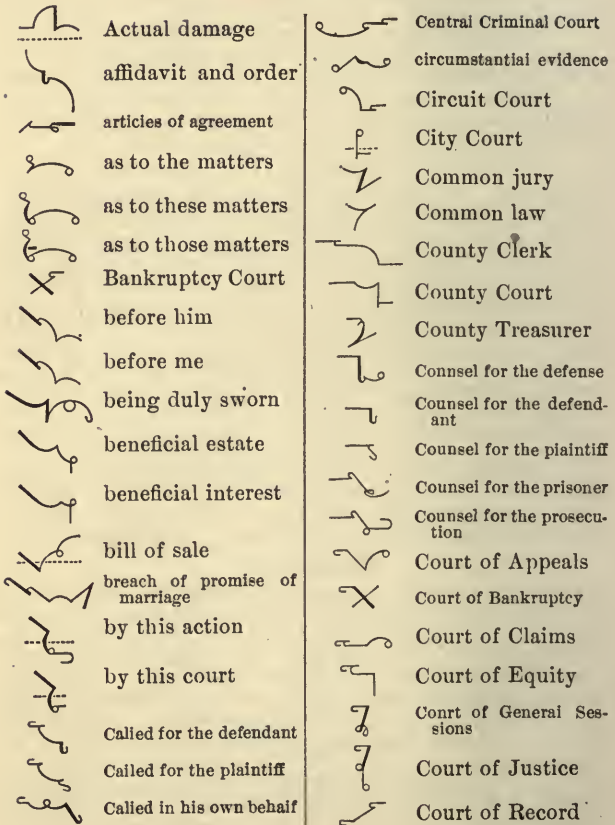 Actual damage
affidavit and order
articles of agreement
as to the matters
as to these matters
as to those matters
Bankruptcy Court
before him
before me
being duly sworn
beneficial estate
beneficial interest
bill of sale
breach of promise of
marriage
by this action
by this court
Called for the defendant
Called for the plaintiff
Called in his own behalf
Central Criminal Court
circumstantial evidence
Circuit Court
City Court
Common jury
Common law
County Clerk
County Court
County Treasurer
Counsel for the defense
Counsel for the defend-
ant
Counsel for the plaintiff
Counsel for the prisoner
Counsel for the prosecu-
tion
Court of Appeals
Court of Bankruptcy
Court of Claims
Court of Equity
Court of General Ses-
sions
Court of Justice
Court of Record